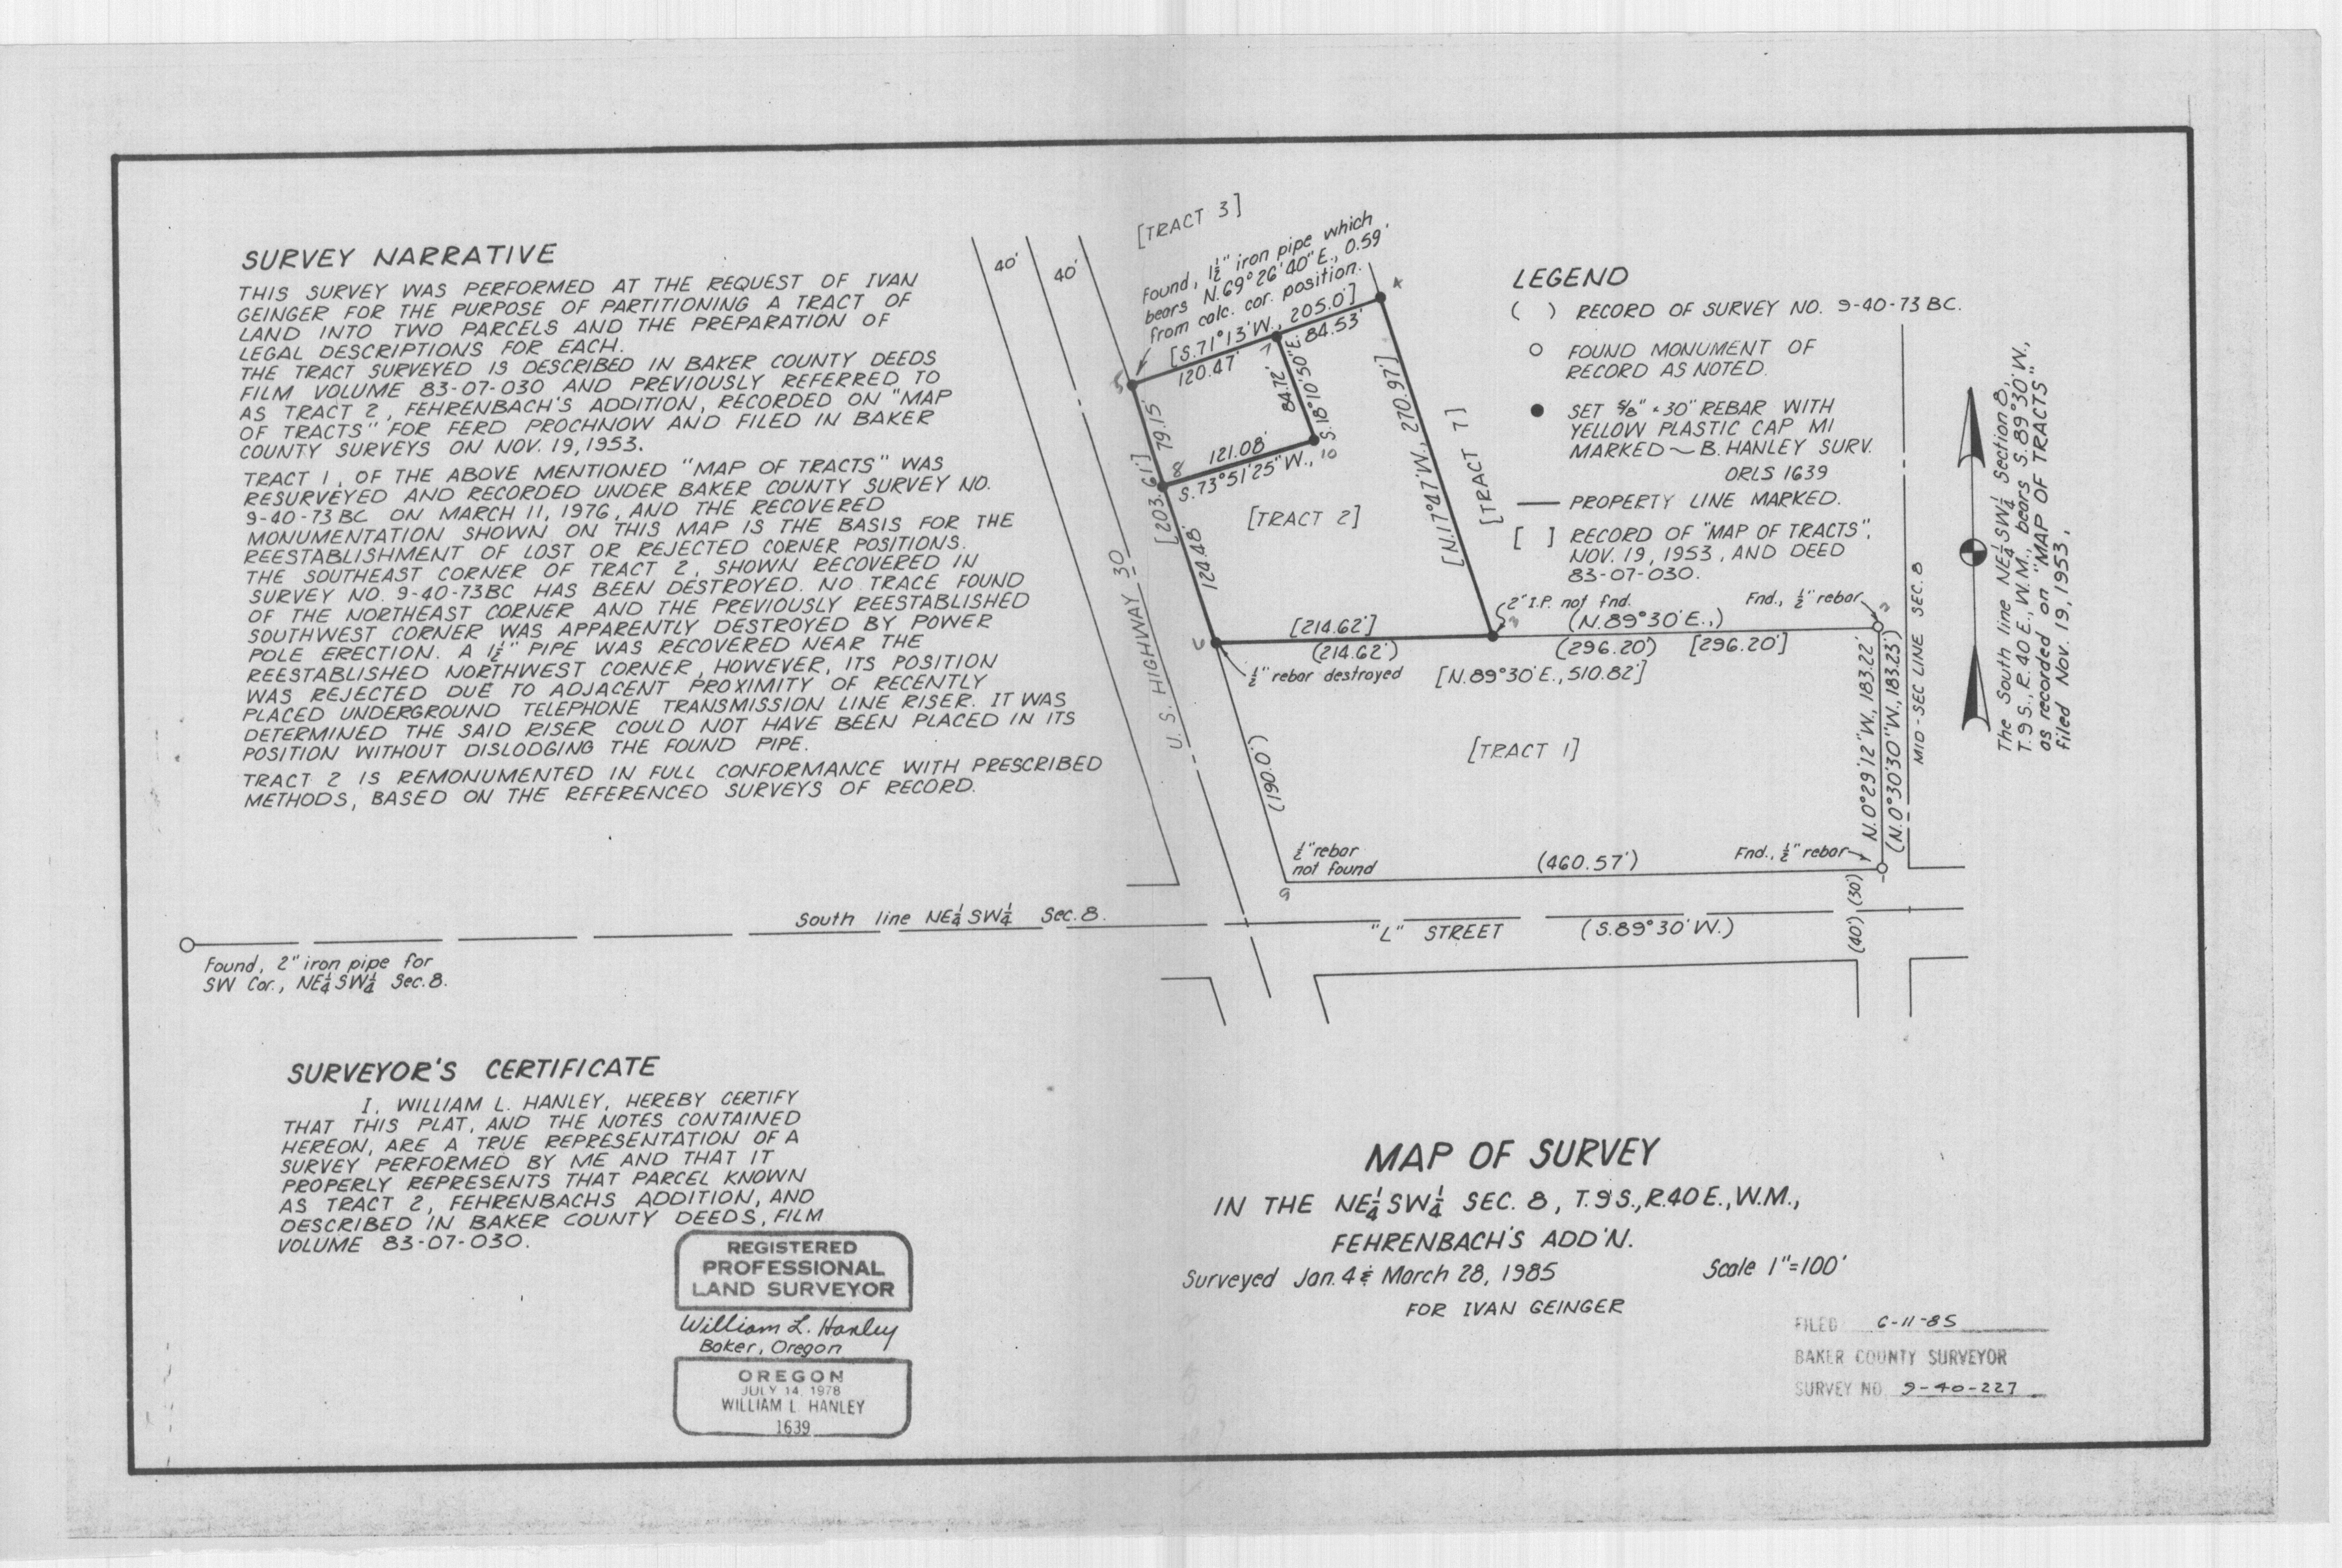 SURVEY NARRATIVE
THIS SURVEY WAS PERFORMED AT THE REQUEST OF IVAN
GEINGER FOR THE PURPOSE OF PARTITIONING A TRACT OF
LAND INTO TWO PARCELS AND THE PREPARATION OF
LEGAL DESCRIPTIONS FOR EACH.
THE TRACT SURVEYED IS DESCRIBED IN BAKER COUNTY DEEDS
FILM VOLUME 83-07-030 AND PREVIOUSLY REFERRED TO
AS TRACT 2, FEHRENBACH'S ADDITION, RECORDED ON "MAP
OF TRACTS" FOR FERD PROCHNOW AND FILED IN BAKER
COUNTY SURVEYS ON NOV. 19, 1953.
TRACT 1, OF THE ABOVE MENTIONED "MAP OF TRACTS" WAS
RESURVEYED AND RECORDED UNDER BAKER COUNTY SURVEY NO.
9-40-73 BC ON MARCH 11, 1976, AND THE RECOVERED
MONUMENTATION SHOWN ON THIS MAP IS THE BASIS FOR THE
REESTABLISHMENT OF LOST OR REJECTED CORNER POSITIONS.
THE SOUTHEAST CORNER OF TRACT 2, SHOWN RECOVERED IN
SURVEY NO. 9-40-73BC HAS BEEN DESTROYED. NO TRACE FOUND
OF THE NORTHEAST CORNER AND THE PREVIOUSLY REESTABLISHED
SOUTHWEST CORNER WAS APPARENTLY DESTROYED BY POWER
POLE ERECTION. A 1½" PIPE WAS RECOVERED NEAR THE
REESTABLISHED NORTHWEST CORNER, HOWEVER, ITS POSITION
WAS REJECTED DUE TO ADJACENT PROXIMITY OF RECENTLY
PLACED UNDERGROUND TELEPHONE TRANSMISSION LINE RISER. IT WAS
DETERMINED THE SAID RISER COULD NOT HAVE BEEN PLACED IN ITS
POSITION WITHOUT DISLODGING THE FOUND PIPE.
TRACT 2 IS REMONUMENTED IN FULL CONFORMANCE WITH PRESCRIBED
METHODS, BASED ON THE REFERENCED SURVEYS OF RECORD.
40'
40'
[TRACT 3]
Found, 1½" iron pipe which
bears N.69°26'40"E., 0.59'
from calc. cor. position.
[S.71°13'W., 205.0']
120.47'
84.53'
7
84.72'
S.18°10'50"E.
79.15'
121.08'
S.73°51'25"W.,
10
8
[203.61']
124.48'
[TRACT 2]
[N.17°47'W., 270.97']
[TRACT 7]
U.S. HIGHWAY 30
2" I.P. not fnd.
Fnd., ½" rebar
[214.62']
(N.89°30'E.,)
(214.62')
(296.20')
[296.20']
½" rebar destroyed
[N.89°30'E., 510.82']
(190.0')
[TRACT 1]
N.0°29'12"W., 183.22'
(N.0°30'30"W., 183.25')
MID-SEC LINE SEC. 8
½" rebar
not found
9
(460.57')
Fnd., ½" rebar
(30')
(40')
South line NE¼SW¼ Sec. 8.
"L" STREET
(S.89°30'W.)
Found, 2" iron pipe for
SW Cor., NE¼SW¼ Sec. 8.
LEGEND
( ) RECORD OF SURVEY NO. 9-40-73 BC.
FOUND MONUMENT OF
RECORD AS NOTED.
SET 5/8" × 30" REBAR WITH
YELLOW PLASTIC CAP MI
MARKED ~ B. HANLEY SURV.
ORLS 1639
PROPERTY LINE MARKED.
[ ] RECORD OF "MAP OF TRACTS",
NOV. 19, 1953, AND DEED
83-07-030.
The South line NE¼SW¼ Section 8,
T.9S., R.40E., W.M., bears S.89°30'W.,
as recorded on "MAP OF TRACTS",
filed Nov. 19, 1953,
SURVEYOR'S CERTIFICATE
I, WILLIAM L. HANLEY, HEREBY CERTIFY
THAT THIS PLAT, AND THE NOTES CONTAINED
HEREON, ARE A TRUE REPRESENTATION OF A
SURVEY PERFORMED BY ME AND THAT IT
PROPERLY REPRESENTS THAT PARCEL KNOWN
AS TRACT 2, FEHRENBACHS ADDITION, AND
DESCRIBED IN BAKER COUNTY DEEDS, FILM
VOLUME 83-07-030.
REGISTERED
PROFESSIONAL
LAND SURVEYOR
William L. Hanley
Baker, Oregon
OREGON
JULY 14, 1978
WILLIAM L. HANLEY
1639
MAP OF SURVEY
IN THE NE¼SW¼ SEC. 8, T.9S., R.40E., W.M.,
FEHRENBACH'S ADD'N.
Surveyed Jan. 4 & March 28, 1985
Scale 1"=100'
FOR IVAN GEINGER
FILED 6-11-85
BAKER COUNTY SURVEYOR
SURVEY NO. 9-40-227